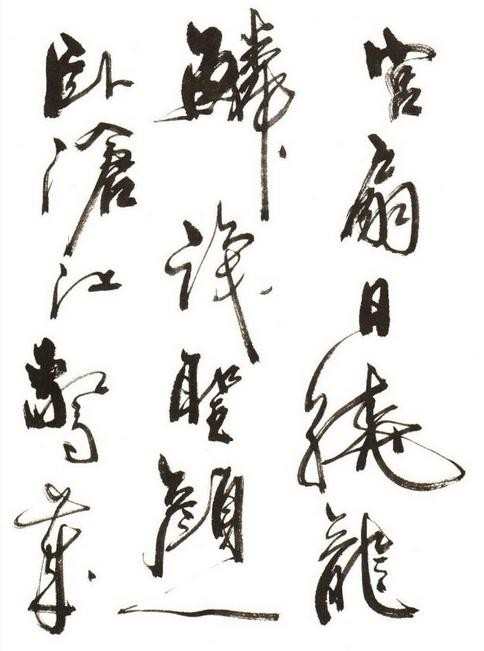 宮扇日繞龍
鱗識聖顏一
臥滄江驚歲